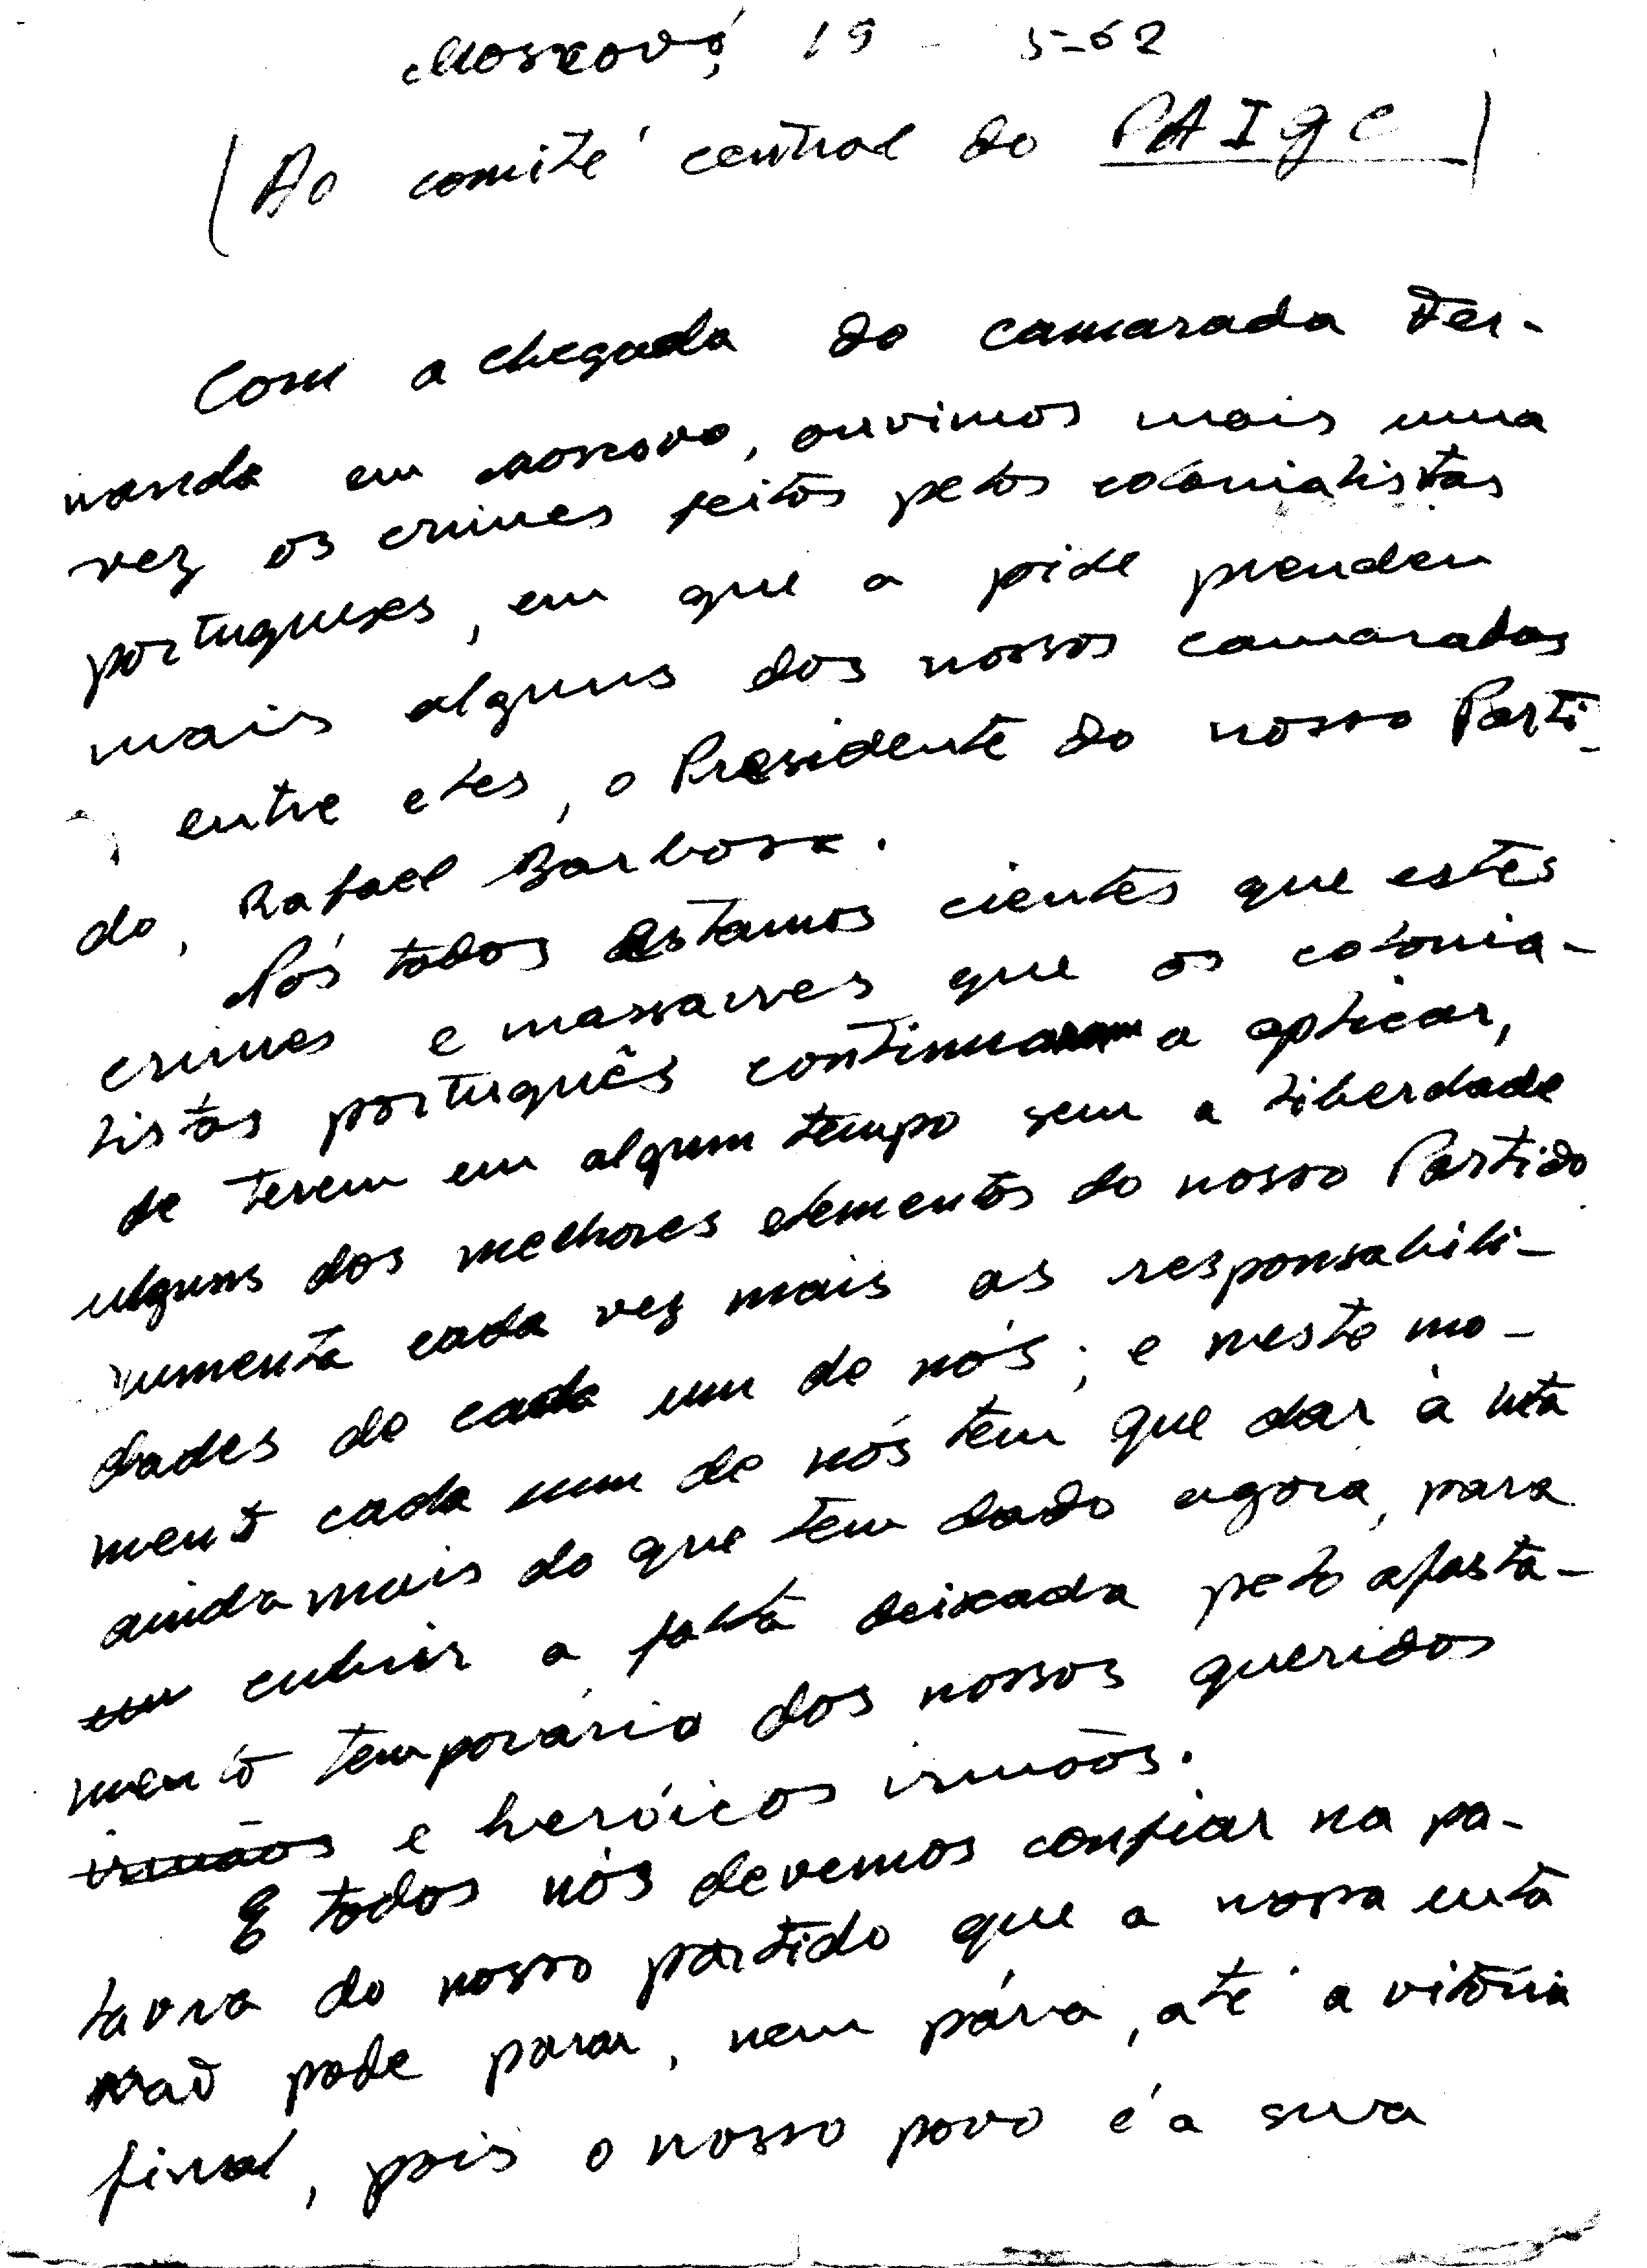 Moscovo, 19 - 5-62
(Ao comité central do PAIGC)
Com a chegada do camarada Fer-
nanda em Moscovo, ouvimos mais uma
vez os crimes feitos pelos colonialistas
portugueses, em que a pide prendeu
mais alguns dos nossos camaradas
, entre eles, o Presidente do nosso Parti-
do, Rafael Barbosa.
Nós todos estamos cientes que estes
crimes e massacres que os colonia-
listas português continuaram a aplicar,
de terem em algum tempo sem a liberdade
alguns dos melhores elementos do nosso Partido
aumenta cada vez mais as responsabili-
dades de cada um de nós; e neste mo-
mento cada um de nós tem que dar à luta
ainda mais do que tem dado agora, para
em cubrir a falta deixada pelo afasta-
mento temporário dos nossos queridos
irmãos e heróicos irmãos.
E todos nós devemos confiar na pa-
lavra do nosso partido que a nossa luta
não pode parar, nem pára, até a vitória
final, pois o nosso povo é a sua